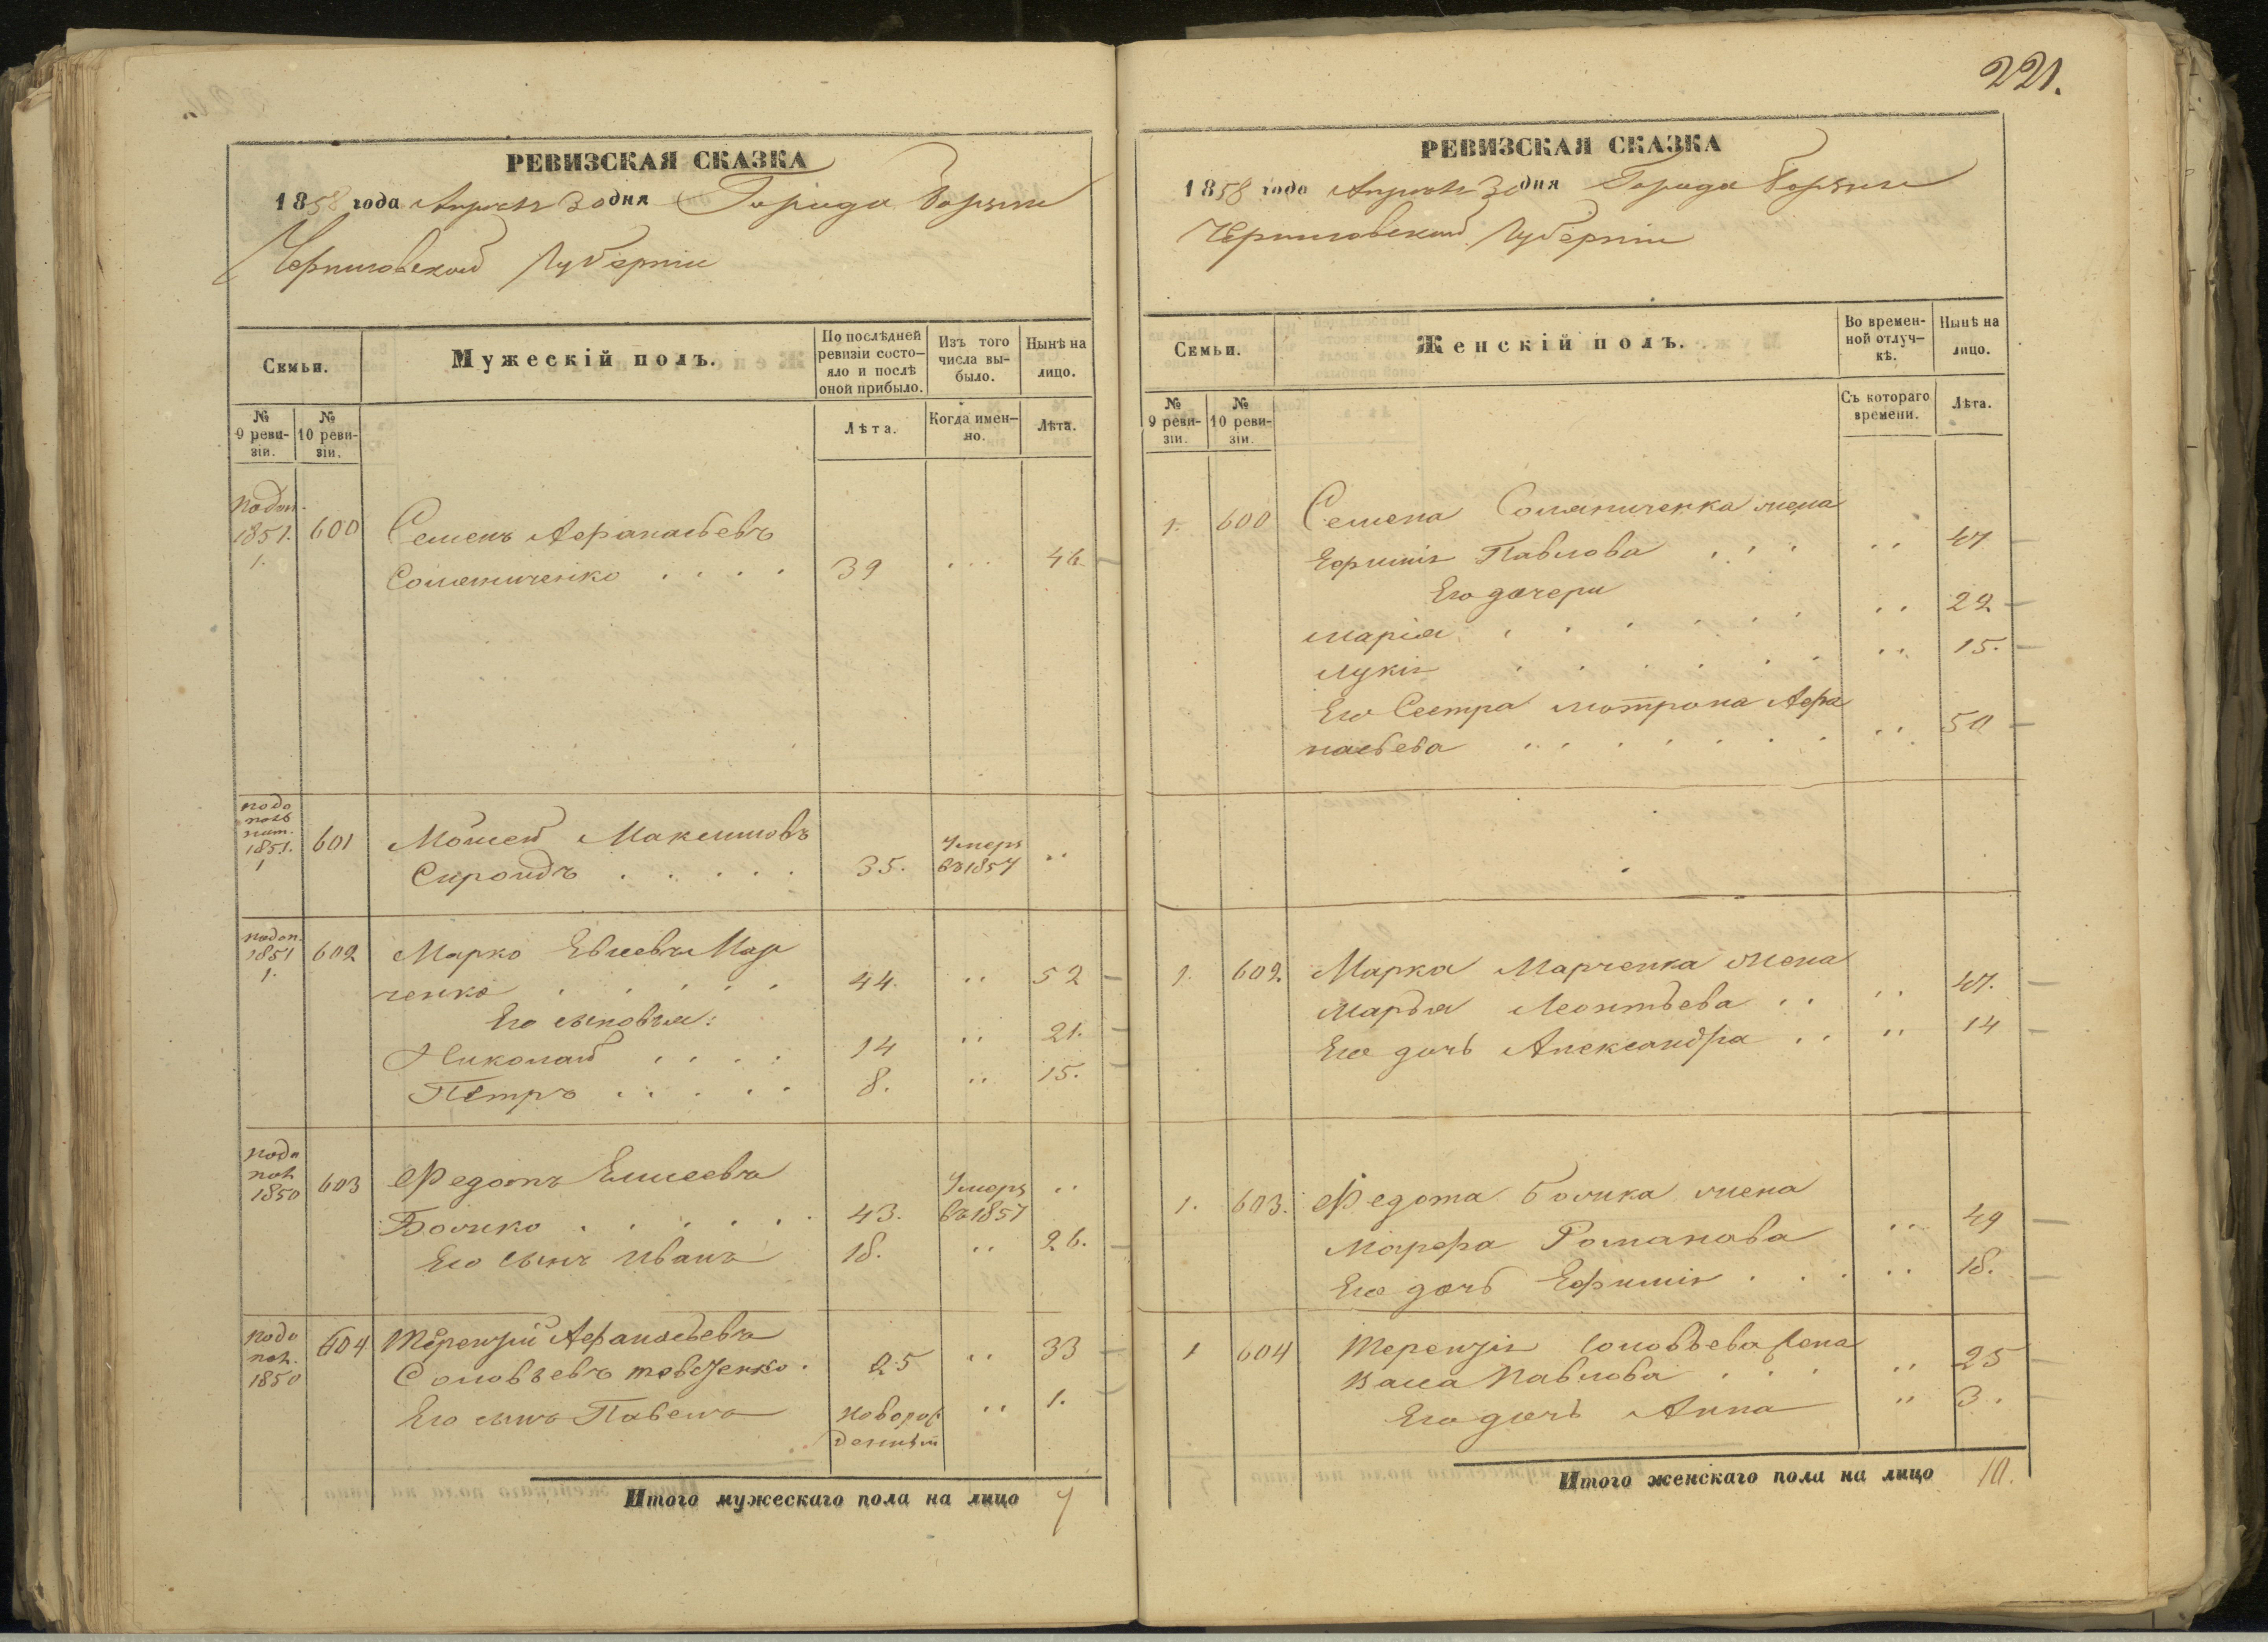 221.
РЕВИЗСКАЯ СКАЗКА
1858 года Апреля 30 дня Города Борзны
Черниговской Губерніи
Семьи.
Мужескій полъ.
По послѣдней ревизіи состо-
яло и послѣ оной прибыло.
Изъ того числа вы-
было.
Нынѣ на лицо.
№ 9 реви-
зіи.
№ 10 реви-
зіи.
Лѣта.
Когда имен-
но.
Лѣта.
подоп. 1851. 1. 600 Семенъ Афанасьевъ
39 46
подо полнит. 1851. 1 601 Мойсей Максимовъ
Сироидъ 35. Умеръ въ 1857
подоп. 1851 1. 602 Марко Евсеевъ Мар
ченко 44. 52
Его сыновья:
Николай 14 21.
Петръ 8. 15.
подо пол. 1850 603 Федотъ Елисеевъ
43. Умеръ въ 1857
Его сынъ Иванъ 18. 26.
подо пол. 1850 604 Терентій Афанасьевъ
Соловьевъ 25 33
Его сынъ Павелъ новорож
денный 1.
Итого мужескаго пола на лицо 7
РЕВИЗСКАЯ СКАЗКА
1858 года Апреля 30 дня Города Борзны
Черниговской Губерніи
Семьи.
Женскій полъ.
Во времен-
ной отлуч-
кѣ.
Нынѣ на лицо.
№ 9 реви-
зіи.
№ 10 реви-
зіи.
Съ котораго времени.
Лѣта.
1. 600 Семена жена
Ефимія Павлова 47
Его дочери
Марія 22
Лукія 15.
Его Сестра Мотрона Афа
насьева 50
1. 602. Марка Марченка жена
Марья Леонтьева 47.
Его дочь Александра 14
1. 603. Федота жена
Марфа Романова 49
Его дочь Ефимія 18.
1 604 Терентія Соловьева жена
Васса Павлова 25
Его дочь Анна 3.
Итого женскаго пола на лицо 10.